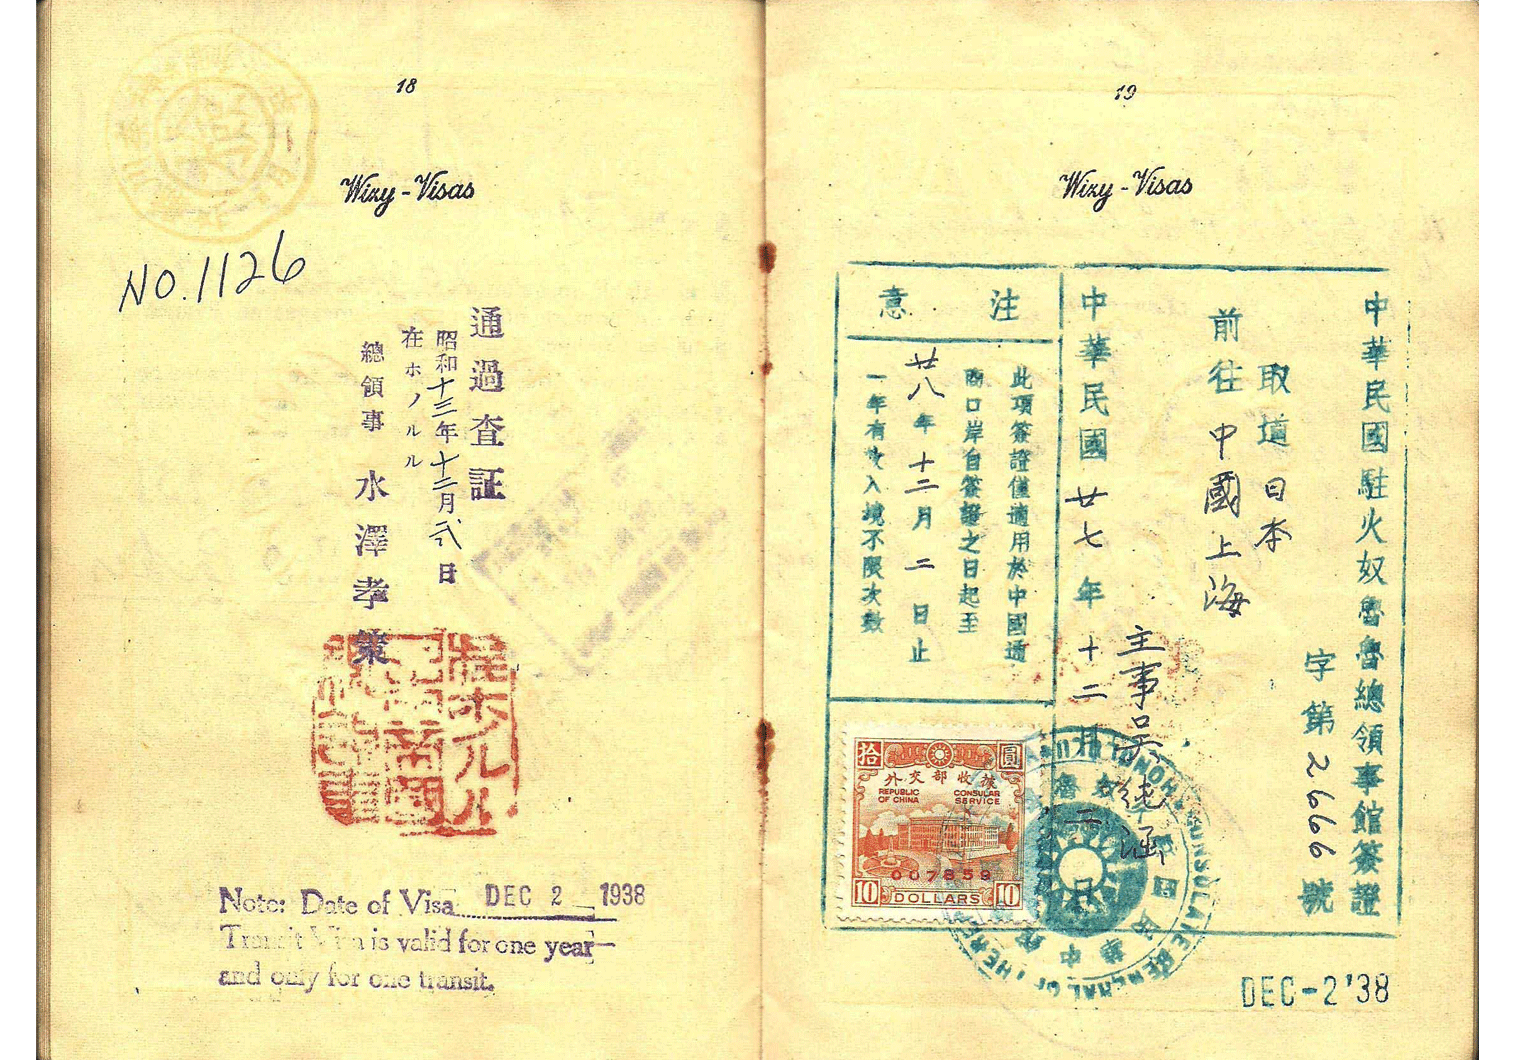 18
Wizy-Visas
NO.1126
通過査証
昭和十三年十二月弐日
在ホノルル
總領事 水澤孝策
Note: Date of Visa DEC 2 1938
Transit Visa is valid for one year
and only for one transit.
19
Wizy-Visas
中華民國駐火奴魯魯總領事館簽證
字第2666號
取道日本
前往中國上海
主事吳
中華民國廿七年十二月二日
注意
此項簽證僅適用於中國通
商口岸自簽證之日起至
廿八年十二月二日止
一年有效入境不限次數
拾 圓
外交部收據
REPUBLIC OF CHINA
CONSULAR SERVICE
007859
10 DOLLARS 10
DEC-2'38